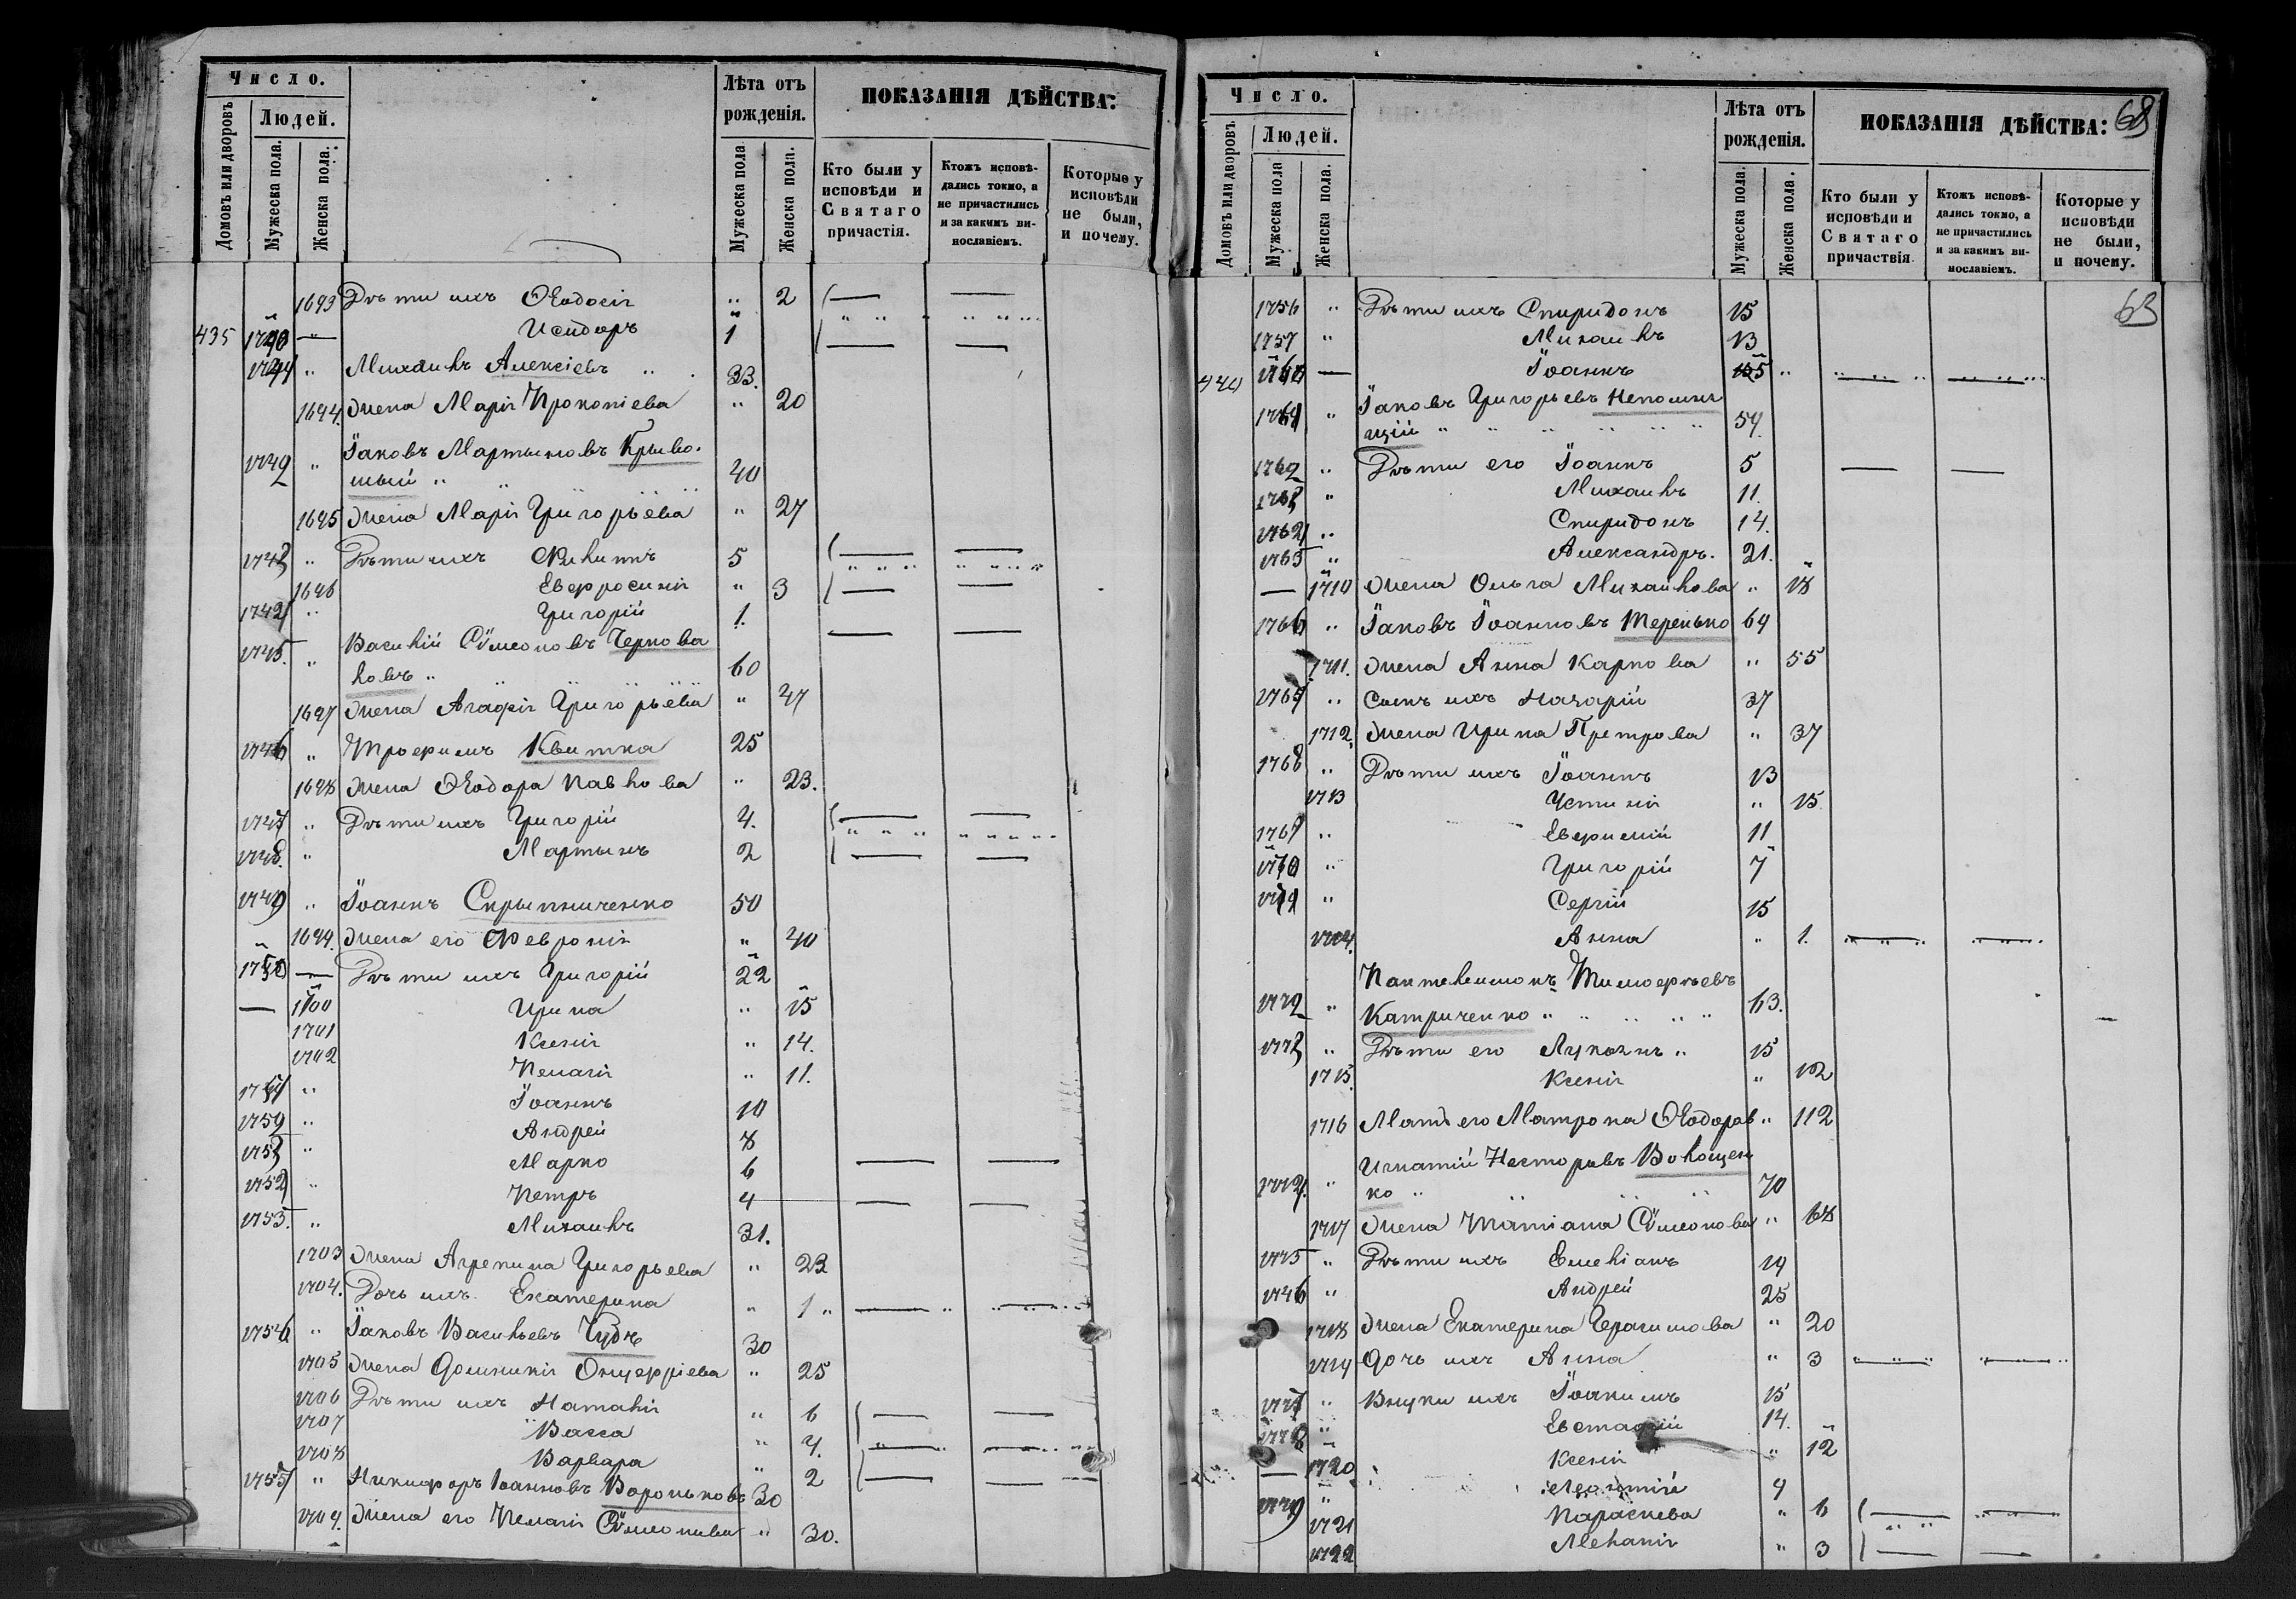 Число.
Лѣта отъ рожденія.
ПОКАЗАНІЯ ДѢЙСТВА:
Домовъ или дворовъ
Людей.
Мужеска пола.
Женска пола.
Мужеска пола
Женска пола.
Кто были у исповѣди и Святаго причастія.
Ктожъ исповѣдались токмо, а не причастились и за какимъ винословіемъ.
Которые у исповѣди не были, и почему.
1693 Дѣти ихъ Ѳеодосія " 2
435 Исидоръ 1
" Михаилъ Алексіевъ 33.
1694. Жена Марія Прокопіева " 20
" Іаковъ Мартыновъ Крыво-
шый " 40
1695 Жена Марія Григорьева " 27
" Дѣти ихъ Никита 5
1696 Евфросинія " 3
Григорій 1.
1745. " Василій Сѵмеоновъ Чернова
ловъ " 60
1697 Жена Агафія Григорьева " 47
1746 " Трофимъ Квитка 25
1698 Жена Ѳеодора Павлова " 23.
1747 " Дѣти ихъ Григорій 4.
1748. " Мартынъ 2
1749 " Іоаннъ Скрыпниченко 50
1699. Жена его Февронія " 40
1750 — Дѣти ихъ Григорій 22
— 1700 Ирина " 15
1701 Ксенія " 14.
1702 Пелагія " 11.
" Іоаннъ 10
" Андрей 8
" Марко 6
" Петръ 4
1753. " Михаилъ 31.
1703 Жена Агрепина Григорьева " 23
1704. Дочь ихъ Екатерина " 1 "
" Іаковъ Васильевъ Чубъ 30
1705 Жена Домникія Онуфріева " 25
1706 Дѣти ихъ Наталія " 6
1707 Васса " 4.
1708 Варвара " 2
1755 " Никифоръ Іоанновъ Воронько въ 30
1709. Жена его Пелагія Сѵмеонова " 30.
Число.
Лѣта отъ рожденія.
ПОКАЗАНІЯ ДѢЙСТВА:
68
Домовъ или дворовъ
Людей.
Мужеска пола
Женска пола.
Мужеска пола.
Женска пола.
Кто были у исповѣди и Святаго причаствія
Ктожъ исповѣдались токмо, а не причастились и за какимъ винословіемъ.
Которые у исповѣди не были, и почему.
63
1756 " Дѣти ихъ Спиридонъ 15
1757 " Михаилъ 13
440 — Іоаннъ "
" Іаковъ Григорьевъ Непомня
щій " " " " " " 54.
1762 " Дѣти его Іоаннъ 5
" Михаилъ 11.
" Спиридонъ 14.
1765 " Александръ. 21.
— 1710 Жена Ольга Михайлова " 18
1766 " Іаковъ Іоанновъ Теренько 64
1711. Жена Анна Карпова " 55
1767 " Сынъ ихъ Назарій 37
1712. Жена Ирина Петрова " 37
1768 " Дѣти ихъ Іоаннъ 13
1713 Устинія " 15
1769 " Евфимій 11
1770 " Григорій 7
" Сергій 15
1714. Анна " 1.
Пантелеимонъ Тимофѣевъ
1772 " Катриченко " " " " " 63.
" Дѣти его Лукіанъ " 15
1715. Ксенія " 12
1716 Мать его Матрона Ѳеодоров " 112
Игнатій Несторовъ Волощен
" ко " 70
1717 Жена Татіана Сѵмеонова " 68
1775 " Дѣти ихъ Емеліанъ 19
" Андрей 25
1718 Жена Екатерина Герасимова " 20
1719 Дочь ихъ Анна " 3
1777 " Внуки ихъ Іоакимъ 15
1778 " Евстафій 14.
— 1720 Ксенія " 12
1779 " Леонтій 9
1721 Параскева " 6
1722 Меланія " 3